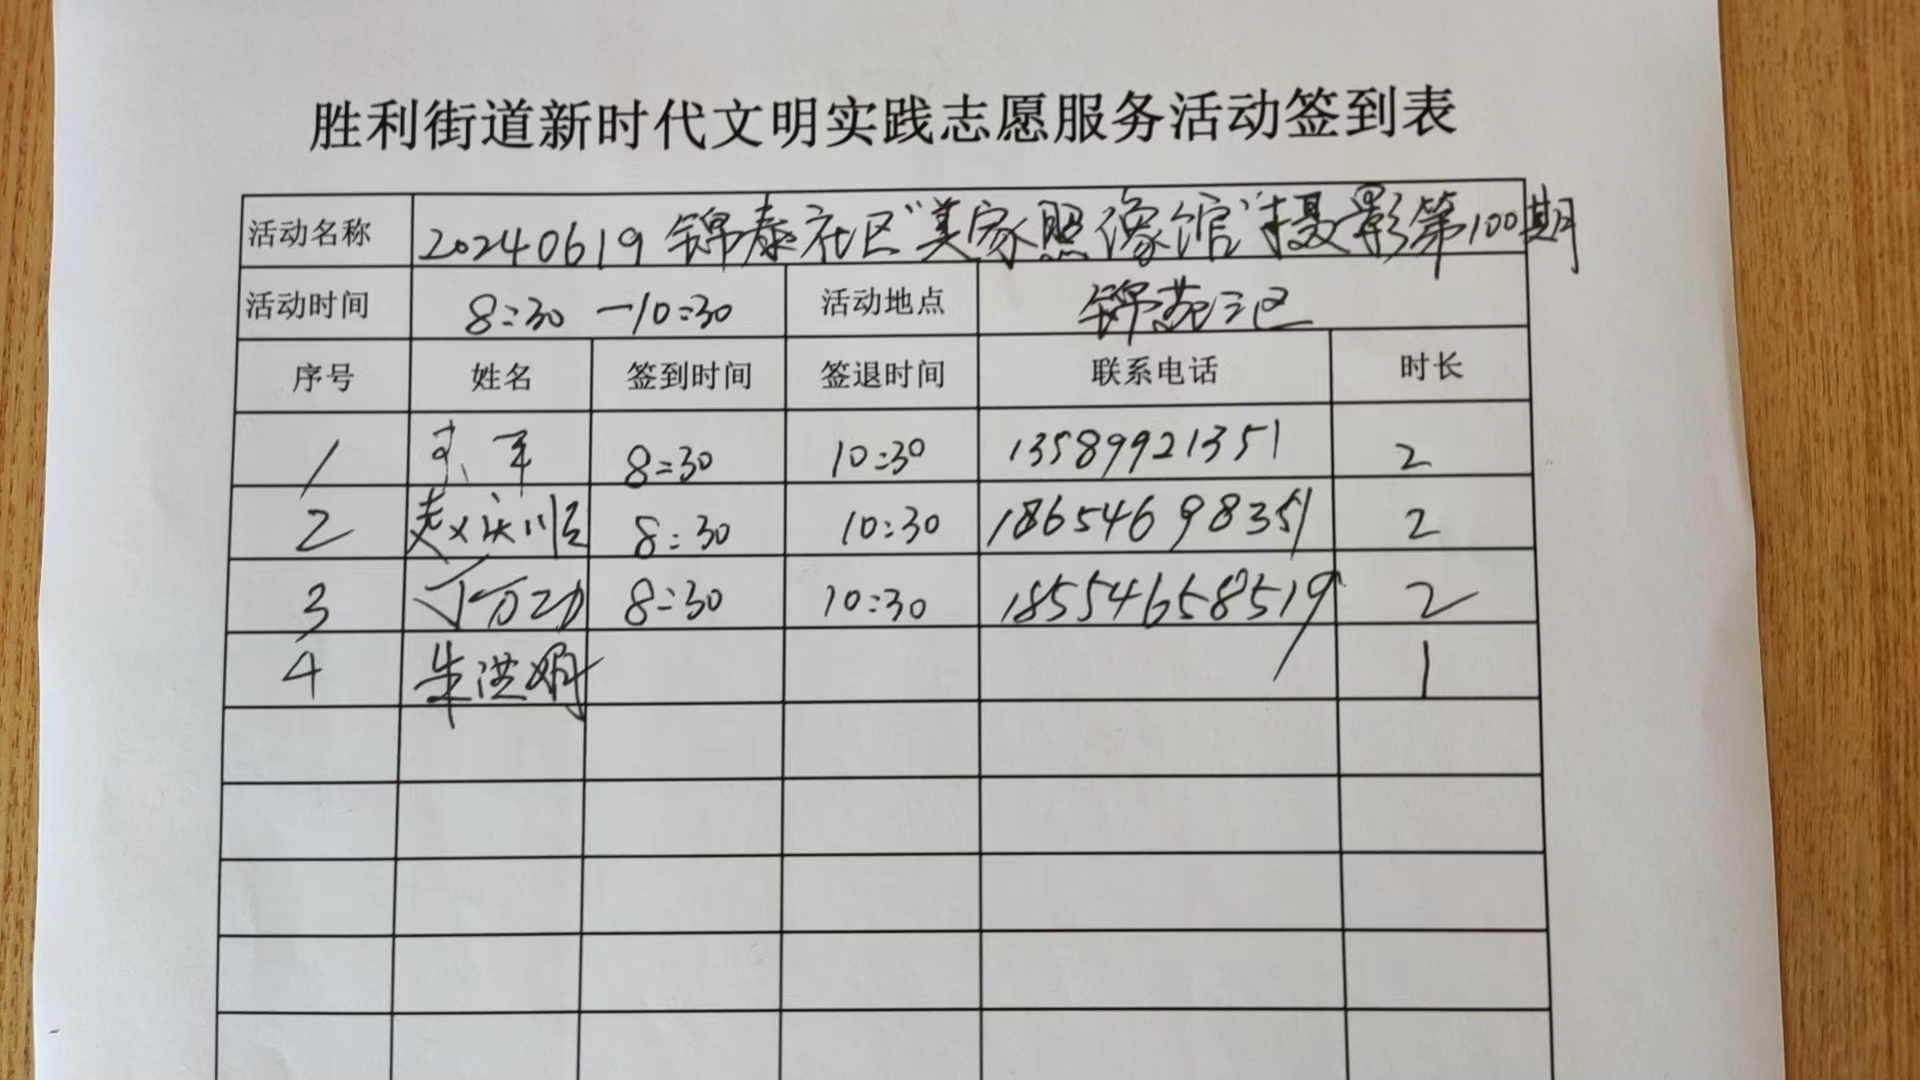 胜利街道新时代文明实践志愿服务活动签到表
活动名称 20240619 锦泰社区"美家照像馆"摄影第100期
活动时间 8:30 —10:30 活动地点 锦苑三区
序号 姓名 签到时间 签退时间 联系电话 时长
1 8:30 10:30 13589921351 2
2 赵庆顺 8:30 10:30 18654698351 2
3 丁万功 8:30 10:30 18554658519 2
4 朱洪娟 1